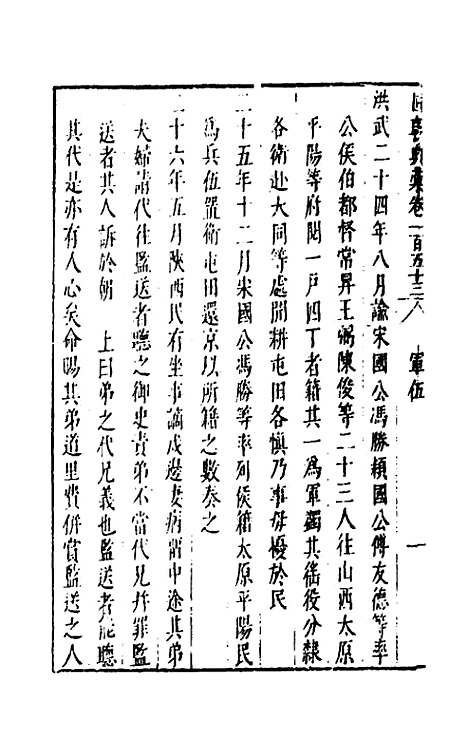 卷一百五十三 軍伍 一
洪武二十四年八月諭宋國公馮勝潁國公傅友德等率
公侯伯都督常昇王弼陳俊等二十三人往山西太原
平陽等府閱一戶四丁者籍其一為軍蠲其徭役分隸
各衛赴大同等處開耕屯田各慎乃事毋擾於民
二十五年十二月宋國公馮勝等率列侯籍太原平陽民
為兵伍置衛屯田還京以所籍之數奏之
二十六年五月陝西民有坐事謫戍邊妻病留中途其弟
夫婦請代往監送者聽之御史責弟不當代兄并罪監
送者其人訴於朝 上曰弟之代兄義也監送者能聽
其代是亦有人心矣命賜其弟道里費併賞監送之人